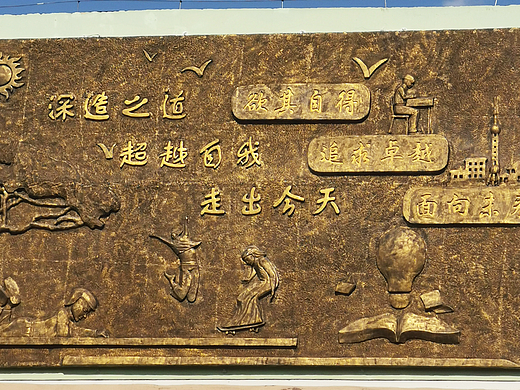 深造之道
欲其自得
超越自我
追求卓越
走出今天
面向未来